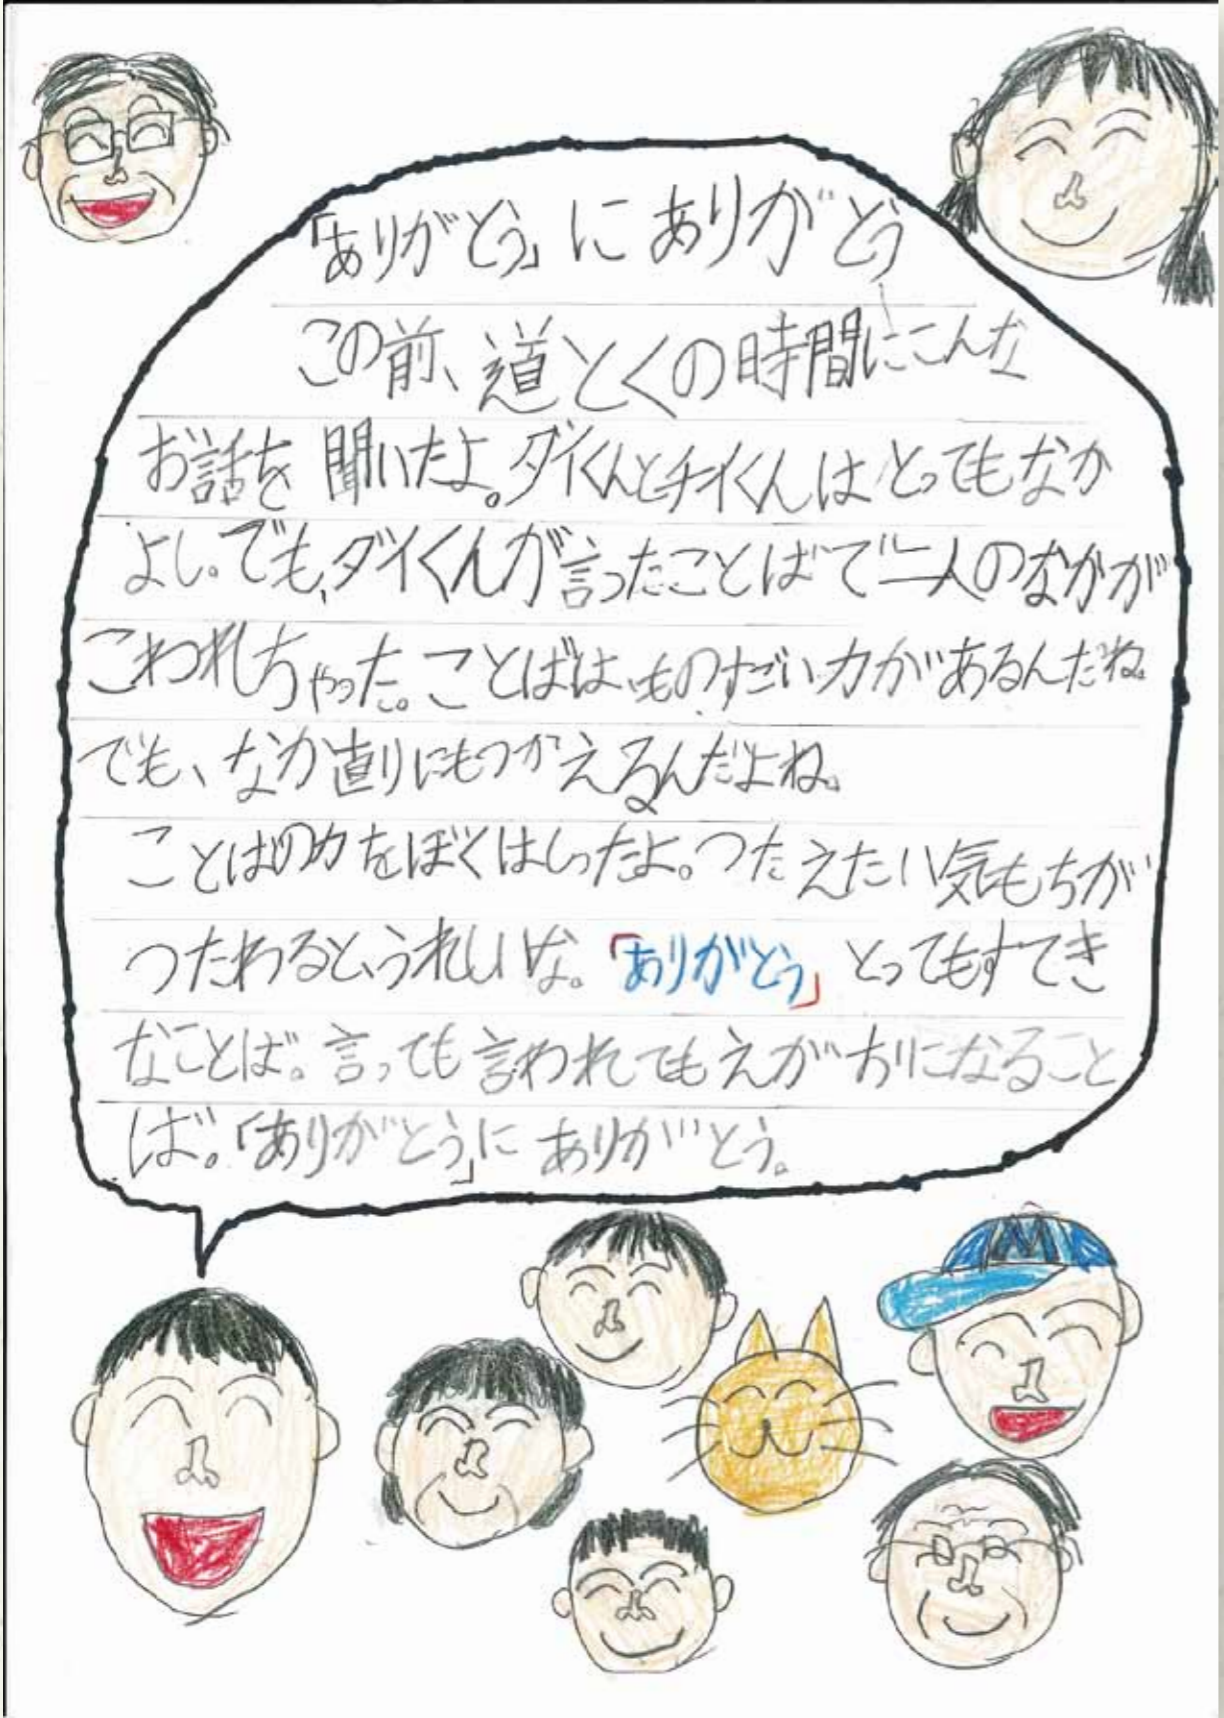 「ありがとう」にありがとう
この前、道とくの時間にこんな
お話を聞いたよ。ダイくんとチイくんはとってもなか
よし。でも、ダイくんが言ったことばで二人のなかが
こわれちゃった。ことばは、ものすごい力があるんだね。
でも、なか直りにもつかえるんだよね。
ことばの力をぼくはしったよ。つたえたい気もちが
つたわると、うれしいな。「ありがとう」とってもすてき
なことば。言っても言われてもえがおになること
ば。「ありがとう」にありがとう。
M